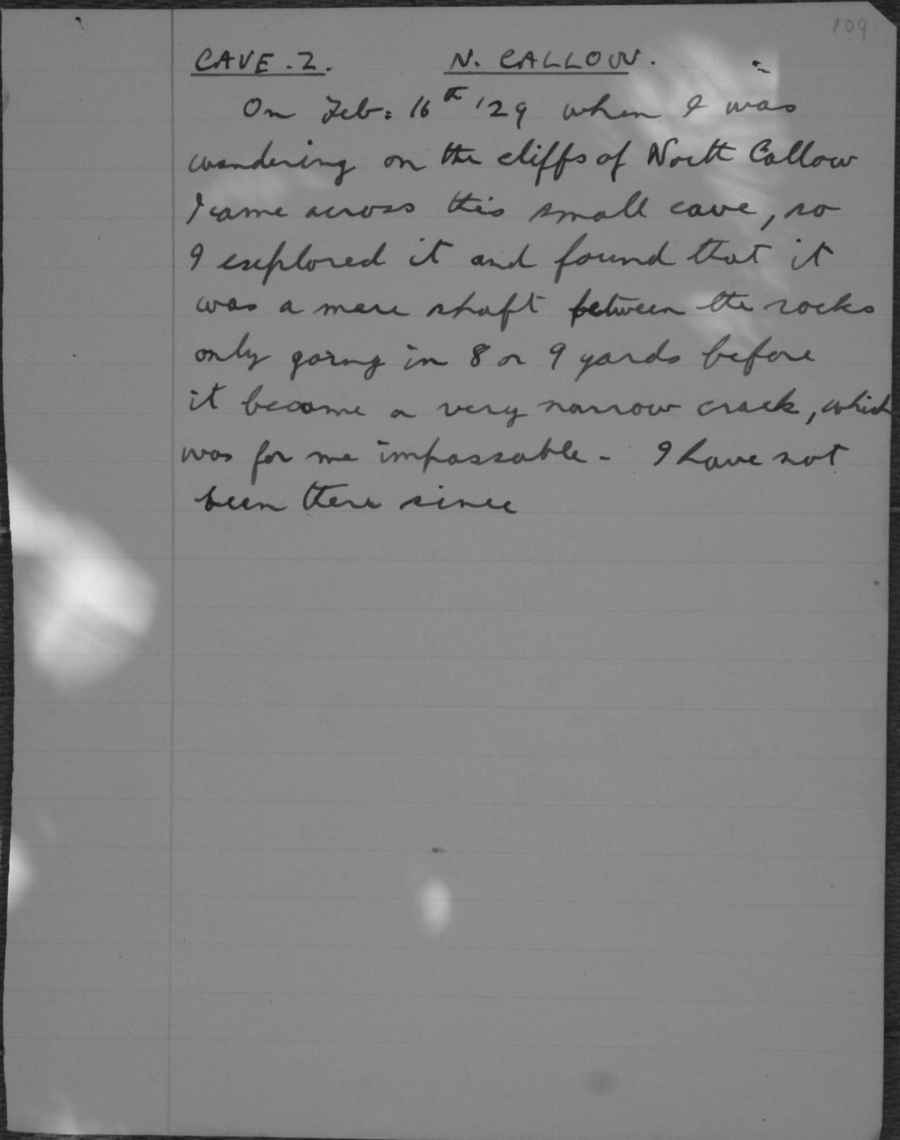 109
CAVE. 2. N. CALLOW.
On Feb: 16th '29 when I was
wandering on the cliffs of North Callow
I came across this small cave, so
I explored it and found that it
was a mere shaft between the rocks
only going in 8 or 9 yards before
it became a very narrow crack, which
was for me impassable - I have not
been there since